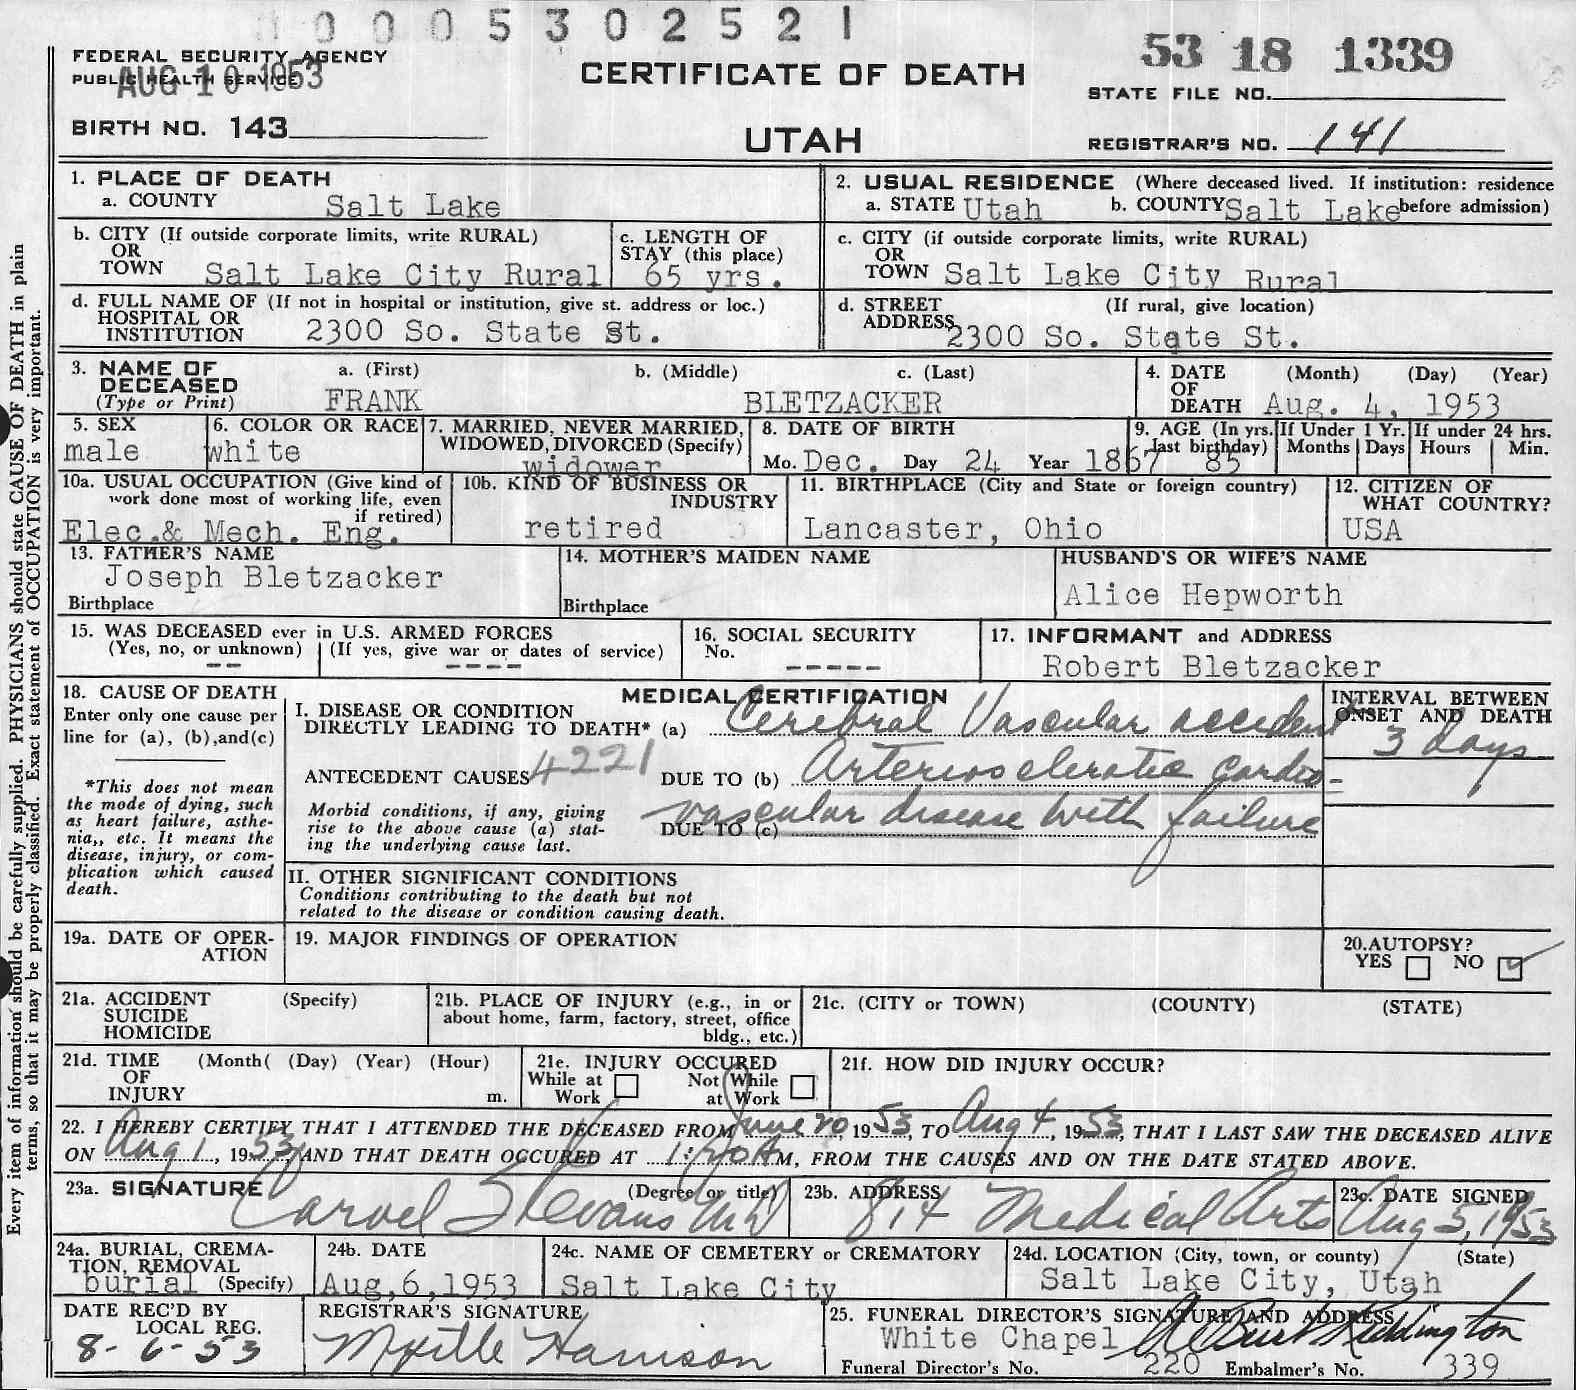 0005302521
FEDERAL SECURITY AGENCY
PUBLIC HEALTH SERVICE
AUG 10 1953
CERTIFICATE OF DEATH
53 18 1339
STATE FILE NO.
BIRTH NO. 143
UTAH
REGISTRAR'S NO. 141
1. PLACE OF DEATH
a. COUNTY Salt Lake
2. USUAL RESIDENCE (Where deceased lived. If institution: residence before admission)
a. STATE Utah b. COUNTY Salt Lake
b. CITY (If outside corporate limits, write RURAL)
OR
TOWN Salt Lake City Rural
c. LENGTH OF
STAY (this place)
65 yrs.
c. CITY (if outside corporate limits, write RURAL)
OR
TOWN Salt Lake City Rural
d. FULL NAME OF (If not in hospital or institution, give st. address or loc.)
HOSPITAL OR
INSTITUTION 2300 So. State St.
d. STREET (If rural, give location)
ADDRESS 2300 So. State St.
3. NAME OF
DECEASED
(Type or Print)
a. (First) b. (Middle) c. (Last)
FRANK BLETZACKER
4. DATE (Month) (Day) (Year)
OF
DEATH Aug. 4, 1953
5. SEX
male
6. COLOR OR RACE
white
7. MARRIED, NEVER MARRIED,
WIDOWED, DIVORCED (Specify)
widower
8. DATE OF BIRTH
Mo. Dec. Day 24 Year 1867
9. AGE (In yrs.
last birthday)
85
If Under 1 Yr.
Months Days
If under 24 hrs.
Hours Min.
10a. USUAL OCCUPATION (Give kind of
work done most of working life, even
if retired)
Elec.& Mech. Eng.
10b. KIND OF BUSINESS OR
INDUSTRY
retired
11. BIRTHPLACE (City and State or foreign country)
Lancaster, Ohio
12. CITIZEN OF
WHAT COUNTRY?
USA
13. FATHER'S NAME
Joseph Bletzacker
Birthplace
14. MOTHER'S MAIDEN NAME
Birthplace
HUSBAND'S OR WIFE'S NAME
Alice Hepworth
15. WAS DECEASED ever in U.S. ARMED FORCES
(Yes, no, or unknown) (If yes, give war or dates of service)
-- ----
16. SOCIAL SECURITY
No.
-----
17. INFORMANT and ADDRESS
Robert Bletzacker
18. CAUSE OF DEATH
Enter only one cause per
line for (a), (b),and(c)
*This does not mean
the mode of dying, such
as heart failure, asthe-
nia,, etc. It means the
disease, injury, or com-
plication which caused
death.
MEDICAL CERTIFICATION
I. DISEASE OR CONDITION
DIRECTLY LEADING TO DEATH* (a) Cerebral Vascular accident
INTERVAL BETWEEN
ONSET AND DEATH
3 days
ANTECEDENT CAUSES 4221 DUE TO (b) Arteriosclerotic cardio-
Morbid conditions, if any, giving
rise to the above cause (a) stat-
ing the underlying cause last.
DUE TO (c) vascular disease with failure
II. OTHER SIGNIFICANT CONDITIONS
Conditions contributing to the death but not
related to the disease or condition causing death.
19a. DATE OF OPER-
ATION
19. MAJOR FINDINGS OF OPERATION
20.AUTOPSY?
YES NO ✓
21a. ACCIDENT (Specify)
SUICIDE
HOMICIDE
21b. PLACE OF INJURY (e.g., in or
about home, farm, factory, street, office
bldg., etc.)
21c. (CITY or TOWN) (COUNTY) (STATE)
21d. TIME (Month( (Day) (Year) (Hour)
OF
INJURY m.
21e. INJURY OCCURED
While at Work Not While at Work
21f. HOW DID INJURY OCCUR?
22. I HEREBY CERTIFY THAT I ATTENDED THE DECEASED FROM June 20, 1953, TO Aug 4, 1953, THAT I LAST SAW THE DECEASED ALIVE
ON Aug 1, 1953 AND THAT DEATH OCCURED AT 1:20 A M, FROM THE CAUSES AND ON THE DATE STATED ABOVE.
23a. SIGNATURE (Degree or title)
Carvel S Evans MD
23b. ADDRESS
814 Medical Arts
23c. DATE SIGNED
Aug 5, 1953
24a. BURIAL, CREMA-
TION, REMOVAL
burial (Specify)
24b. DATE
Aug,6,1953
24c. NAME OF CEMETERY or CREMATORY
Salt Lake City
24d. LOCATION (City, town, or county) (State)
Salt Lake City, Utah
DATE REC'D BY
LOCAL REG.
8-6-53
REGISTRAR'S SIGNATURE
Harrison
25. FUNERAL DIRECTOR'S SIGNATURE AND ADDRESS
White Chapel
Funeral Director's No. 220 Embalmer's No. 339
Every item of information should be carefully supplied. PHYSICIANS should state CAUSE OF DEATH in plain
terms, so that it may be properly classified. Exact statement of OCCUPATION is very important.